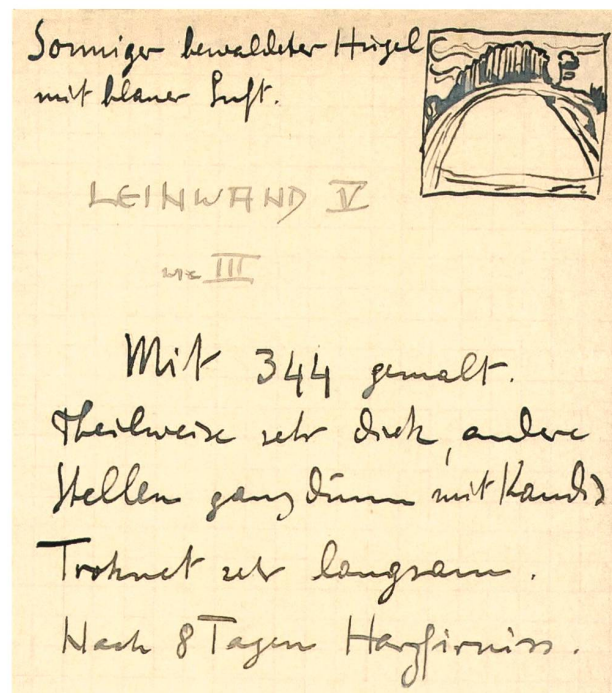 Sonniger bewaldeter Hügel
mit blauer Luft.
LEINWAND V
wie III
Mit 344 gemalt.
Theilweise sehr dick, andere
Stellen ganz dünn mit Kandis
Troknet sehr langsam.
Nach 8 Tagen Harzfirniss.